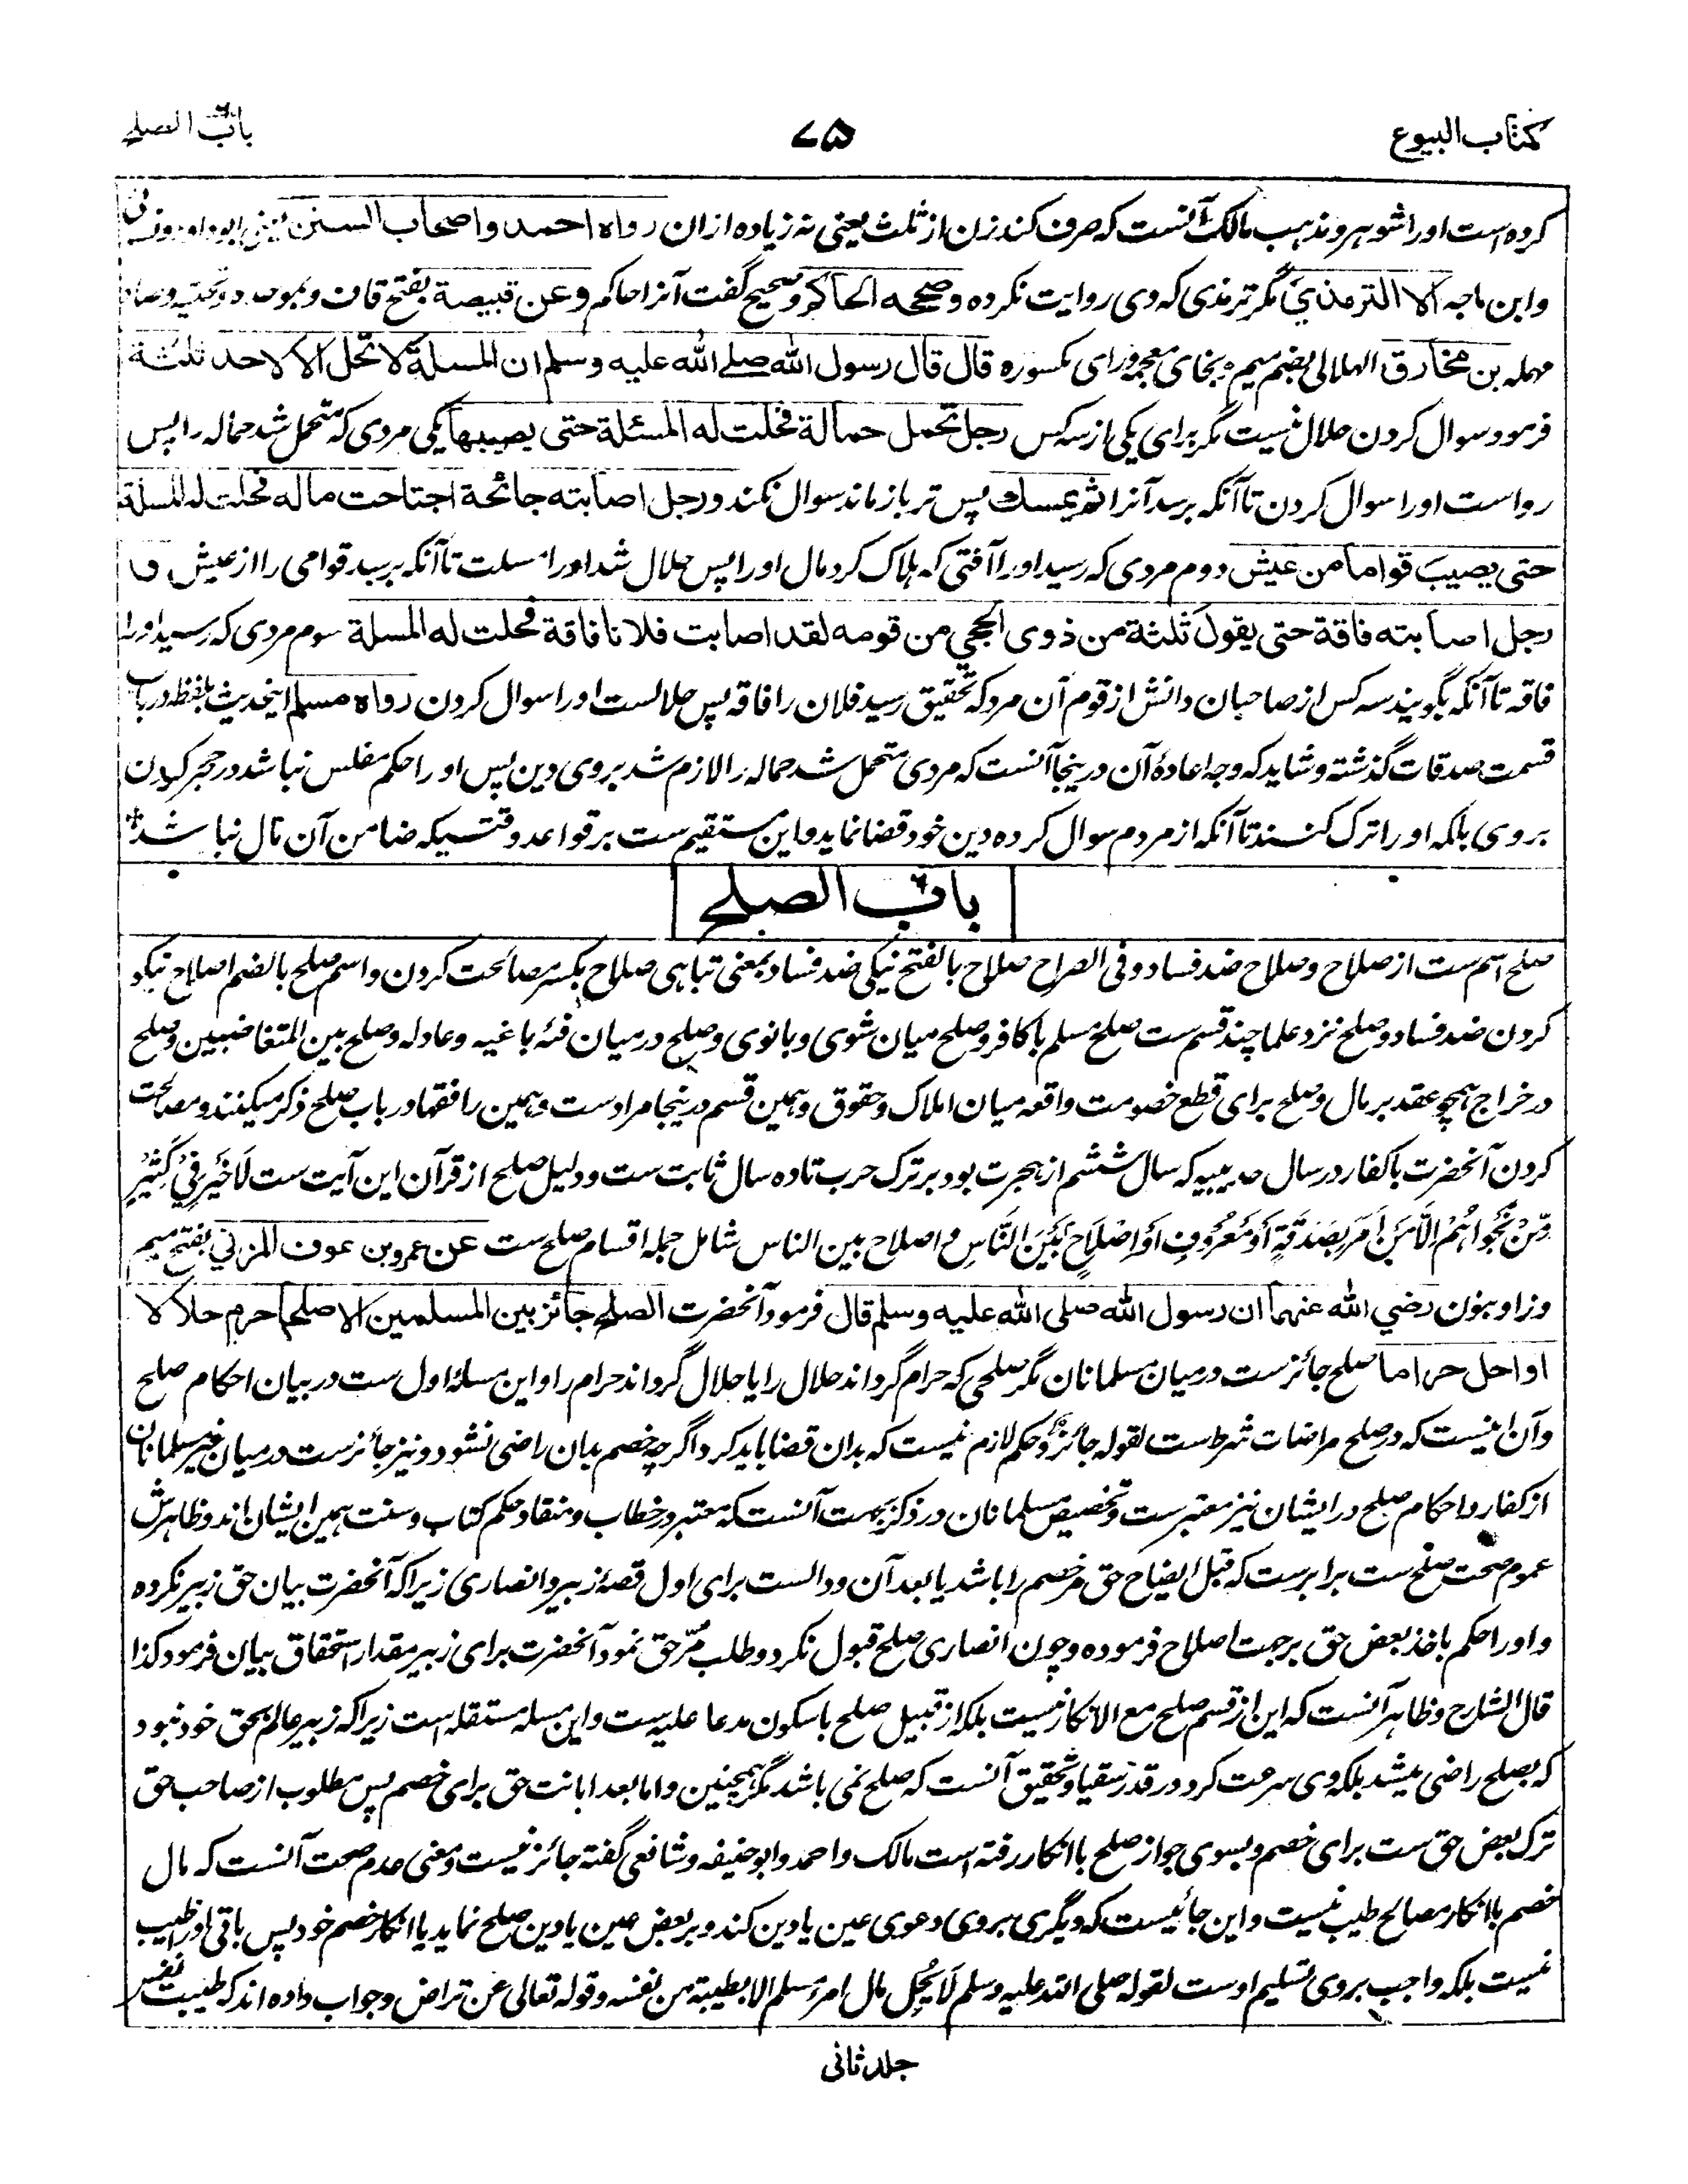 کتاب البیوع
۷۵
باب الصلح
کرده است او را شوهر و مذهب مالک آنست که صرف کند زن از ثلث یعنی نه زیاده ازان رواه احمد واصحاب السنن یعنی ابوداود ونسائی
وابن ماجه الا الترمذي مگر ترمذی که وی روایت نکرده وصححه الحاکم و صحیح گفت آنرا حاکم وعن قبیصة بفتح قاف و بموحده و تحتیه وصاد
مهمله بن مخارق الهلالی بضم میم و بخای معجمه و رای مکسوره قال قال رسول الله صلے الله علیه وسلم ان المسلة لا تحل الا لاحد ثلثة
فرمود سوال کردن حلال نیست مگر برای یکی از سه کس رجل تحمل حمالة فحلت له المسئلة حتی یصیبها یکی مردی که متحمل شد حماله را پس
رواست او را سوال کردن تا آنکه برسد آنرا ثم یمسك پس تر باز ماند سوال نکند ورجل اصابته جائحة اجتاحت ماله فحلت له المسلة
حتی یصیب قواما من عیش دوم مردی که رسید او را آفتی که هلاک کرد مال او را پس حلال شد او را مسلت تا آنکه برسد قوامی را از عیش و
رجل اصابته فاقة حتی یقول ثلثة من ذوی الحجی من قومه لقد اصابت فلانا فاقة فحلت له المسلة سوم مردی که رسید او را
فاقه تا آنکه بگویند سه کس از صاحبان دانش از قوم آن مرد که تحقیق رسید فلان را فاقه پس حلالست او را سوال کردن رواه مسلم اینحدیث بلفظه در باب
قسمت صدقات گذشته و شاید که وجه اعادهٔ آن درینجا آنست که مردی متحمل شد حماله را لازم شد بروی دین پس او را حکم مفلس نباشد در حجر کردن
بروی بلکه او را ترک کنند تا آنکه از مردم سوال کرده دین خود قضا نماید و این مستقیم ست بر قواعد وقتیکه ضامن آن مال نباشد
باب الصلح
صلح اسم ست از صلاح و صلاح ضد فساد و فی الصراح صلاح بالفتح نیکی ضد فساد بمعنی تباهی صلاح بکسر مصالحت کردن واسم صلح بالضم اصلاح نیکو
کردن ضد فساد و صلح نزد علما چند قسم ست صلح مسلم با کافر و صلح میان شوی و بانوی و صلح درمیان فئه باغیه و عادله و صلح بین المتغاضبین و صلح
در خراج همچو عقد بر مال و صلح برای قطع خصومت واقعه میان املاک و حقوق و همین قسم درینجا مرادست و همین را فقها در باب صلح ذکر میکنند و مصالحت
کردن آنحضرت با کفار در سال حدیبیه که سال ششم از هجرت بود بر ترک حرب تا ده سال ثابت ست و دلیل صلح از قرآن این آیت ست لَا خَيْرَ فِيْ كَثِيْرٍ
مِّنْ نَّجْوَاهُمْ اِلَّا مَنْ اَمَرَ بِصَدَقَةٍ اَوْ مَعْرُوْفٍ اَوْ اِصْلَاحٍ بَيْنَ النَّاسِ و اصلاح بین الناس شامل جمله اقسام صلح ست عن عمرو بن عوف المزنی بفتح میم
وزا و بنون رضي الله عنهما ان رسول الله صلی الله علیه وسلم قال فرمود آنحضرت الصلح جائز بین المسلمین الا صلحا حرم حلالا
او احل حراما صلح جائزست درمیان مسلمانان مگر صلحی که حرام گرداند حلال را یا حلال گرداند حرام را و این مسئلهٔ اول ست در بیان احکام صلح
وآن اینست که در صلح مراضات شرط ست لقوله جائز و حکم لازم نیست که بدان قضا باید کرد اگرچه خصم بدان راضی نشود و نیز جائزست درمیان غیر مسلمانان
از کفار و احکام صلح در ایشان نیز معتبرست و تخصیص مسلمانان در ذکر بجهت آنست که معتبر در خطاب و منقاد حکم کتاب و سنت همین ایشان اند و ظاهرش
عموم صحت صلح ست برابرست که قبل ایضاح حق مر خصم را باشد یا بعد آن و دالست برای اول قصهٔ زبیر و انصاری زیرا که آنحضرت بیان حق زبیر نکرده
و او را حکم باخذ بعض حق بر جهت اصلاح فرموده و چون انصاری صلح قبول نکرد و طلب مرّ حق نمود آنحضرت برای زبیر مقدار استحقاق بیان فرمود کذا
قال الشارح و ظاهر آنست که این از قسم صلح مع الانکار نیست بلکه از قبیل صلح با سکون مدعا علیه ست و این مسله مستقله است زیرا که زبیر عالم بحق خود نبود
که بصلح راضی میشد بلکه وی سرعت کرد در قدر سقیا و تحقیق آنست که صلح نمی باشد مگر همچنین و اما بعد ابانت حق برای خصم پس مطلوب از صاحب حق
ترک بعض حق ست برای خصم و بسوی جواز صلح با انکار رفته است مالک و احمد و ابوحنیفه و شافعی گفته جائز نیست و معنی عدم صحت آنست که مال
خصم با انکار مصالح طیب نیست و این جائیست که دیگری بروی دعوی عین یا دین کند و بر بعض عین یا دین صلح نماید با انکار خصم خود پس باقی او را طیب
نیست بلکه واجب بروی تسلیم اوست لقوله صلی الله علیه وسلم لَا يَحِلُّ مال امرئ مسلم الا بطیبة من نفسه وقوله تعالی عن تراض و جواب داده اند که طیبت نفس
جلد ثانی